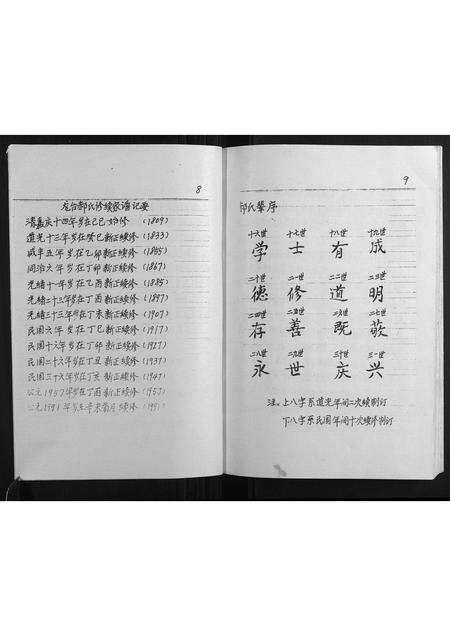 8
龙台郜氏修续家谱记要
清嘉庆十四年岁在己巳始修 (1809)
道光十三年岁在癸巳新正续修 (1833)
咸丰五年岁在乙卯新正续修 (1855)
同治六年岁在丁卯新正续修 (1867)
光绪十一年岁在乙酉新正续修 (1885)
光绪二十三年岁在丁酉新正续修 (1897)
光绪三十三年岁在丁未新正续修 (1907)
民国六年岁在丁巳新正续修 (1917)
民国十六年岁在丁卯新正续修 (1927)
民国二十六年岁在丁丑新正续修 (1937)
民国三十六年岁在丁亥新正续修 (1947)
公元1957年岁在丁酉新正续修 (1957)
公元1991年岁在辛未 月续修 (1991)
9
郜氏辈序
十六世 十七世 十八世 十九世
学 士 有 成
二十世 二一世 二二世 二三世
德 修 道 明
二四世 二五世 二六世 二七世
存 善 既 敬
二八世 二九世 三十世 三一世
永 世 庆 兴
注、上八字系道光年间二次续制订
下八字系民国年间十次续序制订